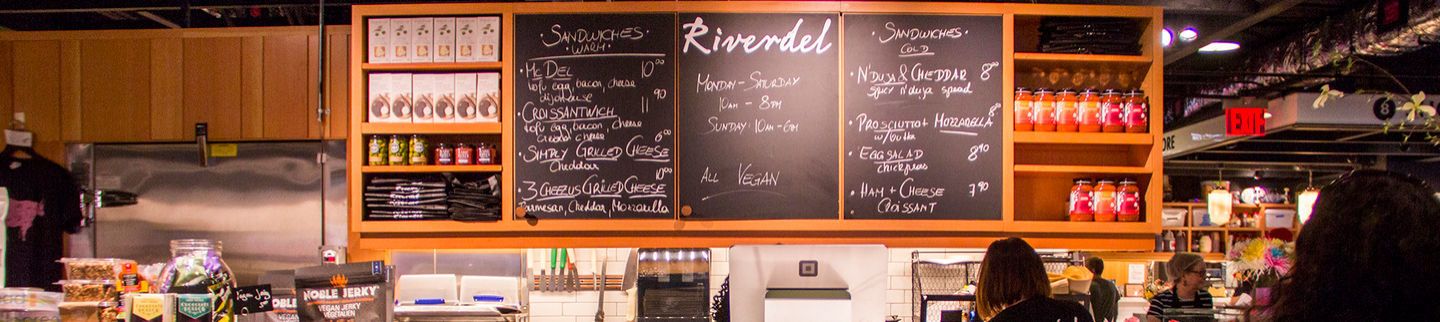 SANDWICHES
WARM
MC DEL 10⁰⁰
tofu egg, bacon, cheese
dijonnaise
CROISSANTWICH 11⁹⁰
tofu egg, bacon, cheese
SIMPLY GRILLED CHEESE 6⁰⁰
Cheddar
3 CHEEZUS GRILLED CHEESE 10⁰⁰
Parmesan, Cheddar, Mozzarella
Riverdel
MONDAY - SATURDAY
10AM - 8PM
SUNDAY: 10AM - 6PM
ALL VEGAN
SANDWICHES
COLD
N'DUJA & CHEDDAR 8⁰⁰
spicy n'duja spread
PROSCIUTTO + MOZZARELLA 8⁹⁰
EGG SALAD 8⁹⁰
chickpeas
HAM + CHEESE 7⁹⁰
CROISSANT
EXIT
NOBLE JERKY
VEGAN JERKY
VÉGÉTALIEN